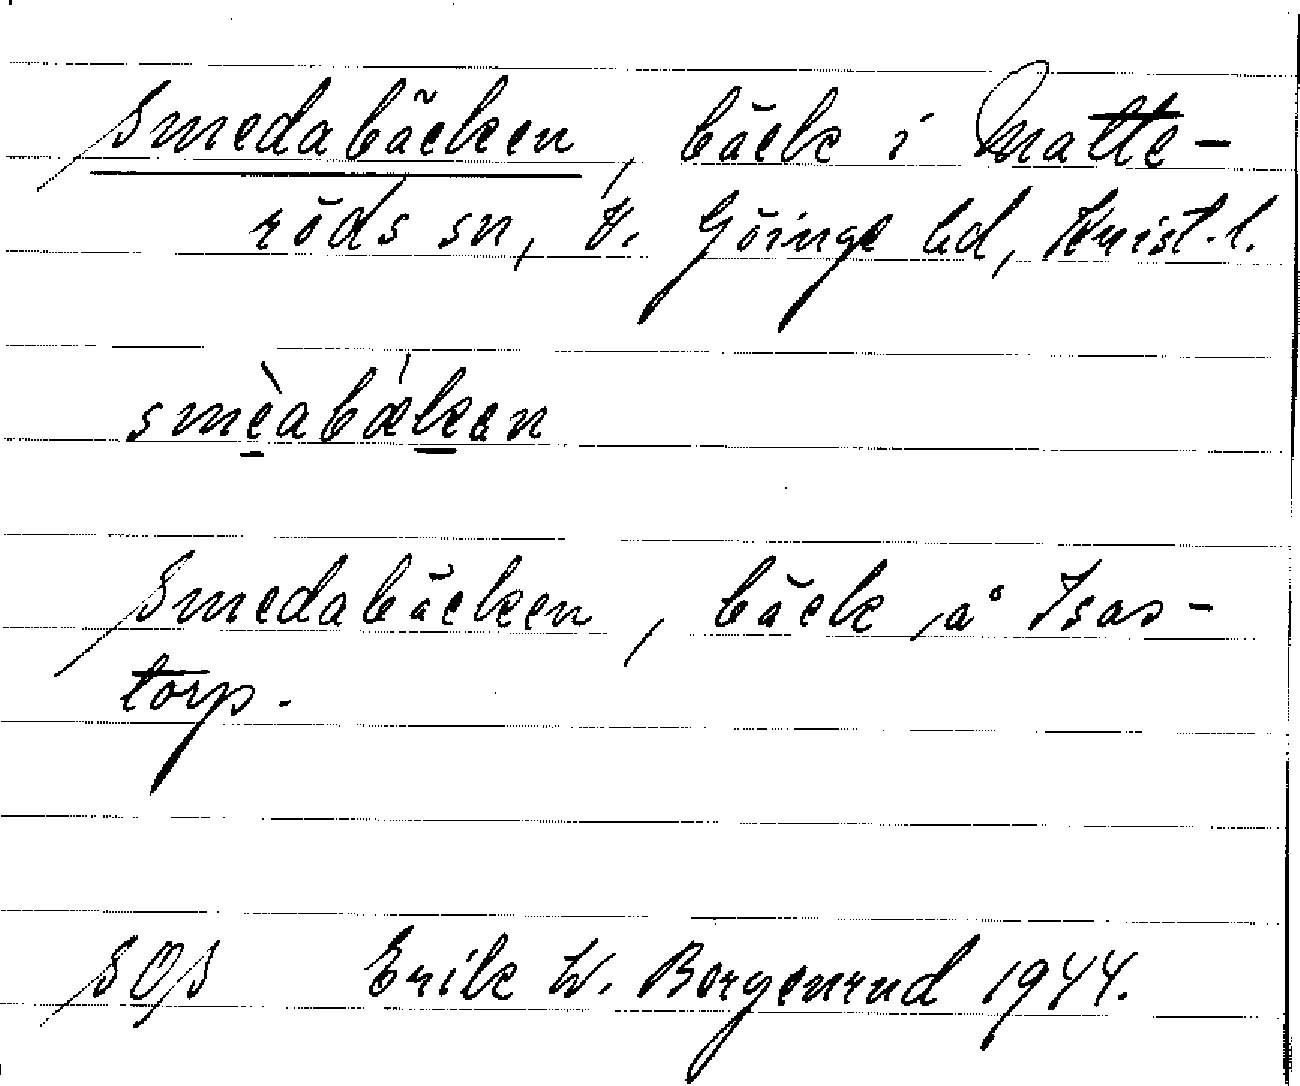 Smedabäcken, bäck i Matte-
röds sn, V. Göinge hd, Krist. l.
smèabækan
Smedabäcken, bäck å Isas-
torp.
SOS Erik W. Borgenrud 1944.